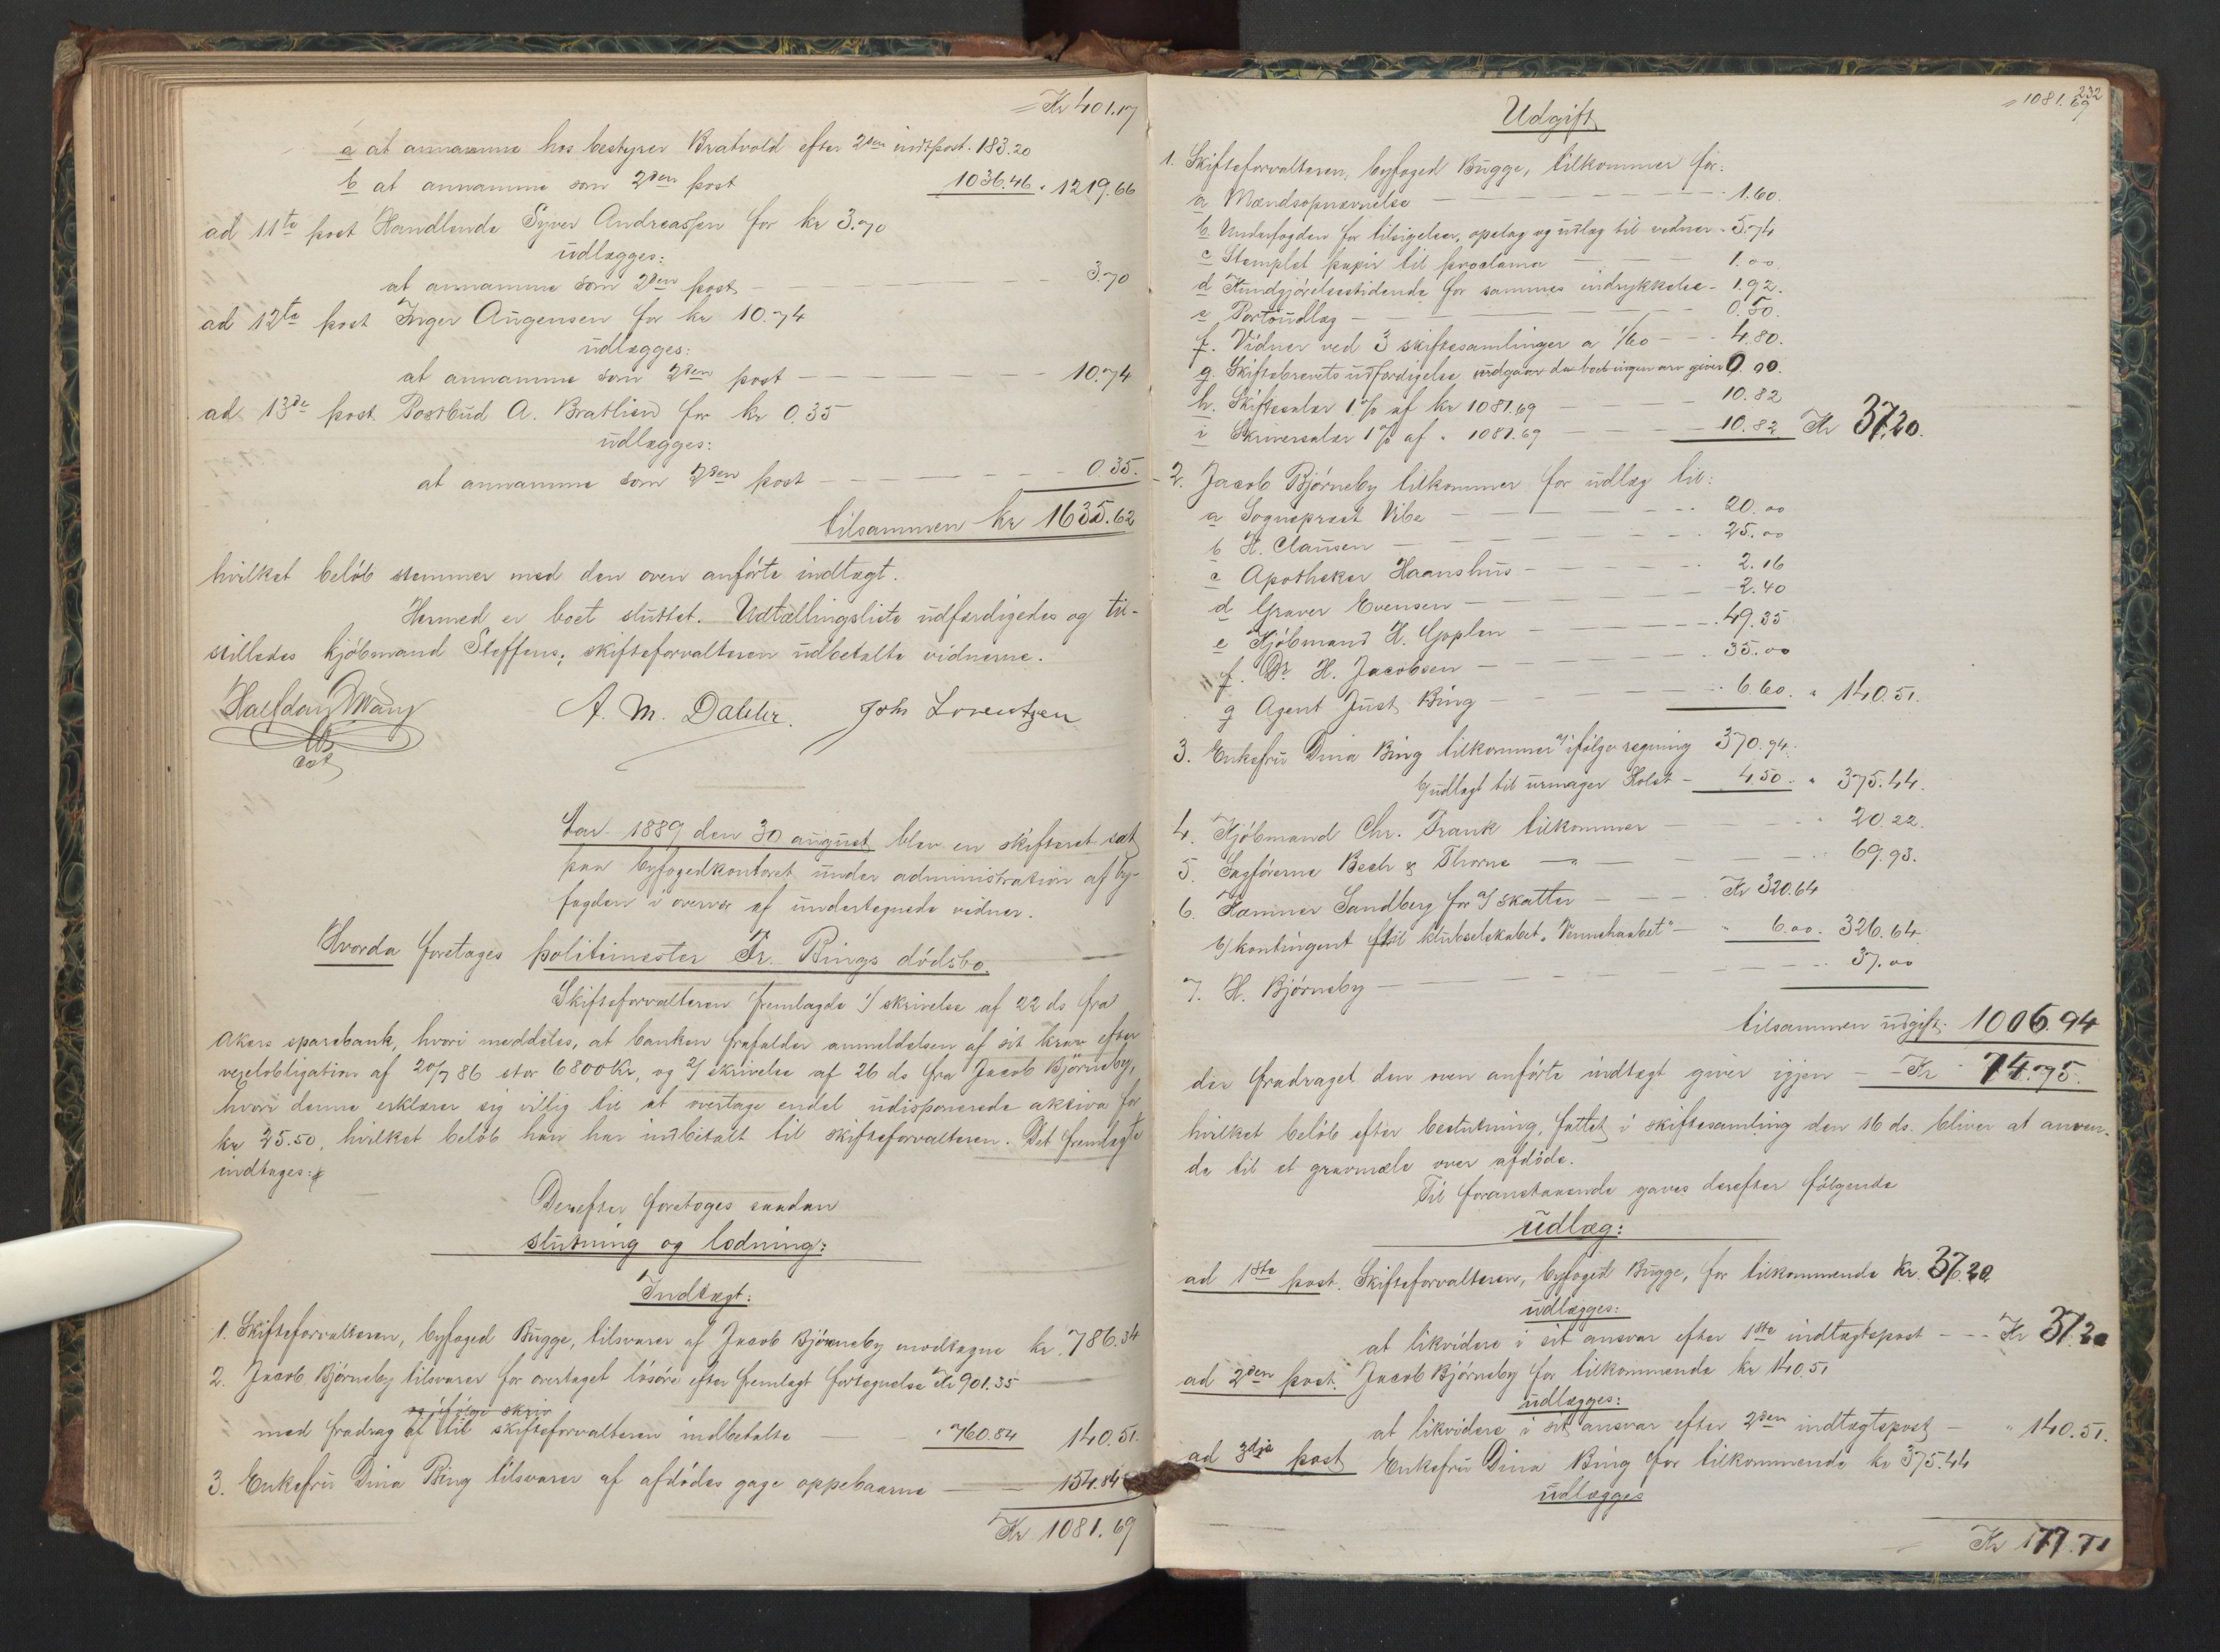 = Kr 401.17
a at annamme hos bestyrer Bratvold efter 2den indtpost. 183.20
b at annamme som 2den post 1036.46 " 1219.66
ad 11te post Handlende Syver Andreassen for kr 3.70
udlægges:
at annamme som 2den post — 3.70
ad 12te post Inger Augensen for kr 10.74
udlægges:
at annamme som 2den post — 10.74
ad 13de post Postbud A. Bratlien for kr 0.35
udlægges:
at annamme som 2den post — 0.35.
tilsammen kr 1635.62
hvilket beløb stemmer med den oven anførte indtægt.
Hermed er boet sluttet. Udtællingsliste udfærdigedes og til-
stilledes kjøbmand Steffens; skifteforvalteren udbetalte vidnerne.
Halfdan Wang A. M. Dahler. Johs Lorentzen
cst
Aar 1889 den 30 august blev en skifteret sat
paa byfogedkontoret under administration af by-
fogden i overvær af undertegnede vidner.
Hvorda foretages politimester Fr. Bings dødsbo.
Skifteforvalteren fremlagde 1/ skrivelse af 22 ds fra
Akers sparebank, hvori meddeles, at banken frafalder anmeldelsen af sit krav efter
vexelobligation af 20/7 86 stor 6800 Kr, og 2/ skrivelse af 26 ds fra Jacob Bjørneby,
hvori denne erklærer sig villig til at overtage endel udisponerede aktiva for
kr 25.50, hvilket beløb han har indbetalt til skifteforvalteren. Det fremlagte
indtages:
Derefter foretoges saadan
slutning og lodning:
Indtægt:
1. Skifteforvalteren, byfoged Bugge, tilsvarer af Jacob Bjørneby modtagne kr. 786.34
2. Jacob Bjørneby tilsvarer for overtaget løsøre efter fremlagt fortegnelse Kr 901.35
og ifølge skriv
med fradrag af til skifteforvalteren indbetalte — " 760.84 140.51.
3. Enkefru Dina Bing tilsvarer af afdødes gage oppebaarne — 154.84
Kr 1081.69
232
= 1081.69
Udgift
1. Skifteforvalteren, byfoged Bugge, tilkommer for:
a Mændsopnævnelse — 1.60.
b. Underfogden for tilsigelser, opslag og udlæg til vidner - 5.74
c Stemplet papir til proclama — 1.00
d Kundgjørelsestidende for sammes indrykkelse - 1.92.
e Portoudlæg — 0.50.
f. Vidner ved 3 skiftesamlinger a 1/60 — 4.80.
g. Skiftebrevets udfærdigelse udgaar da boet ingen arv giver 0.00.
h. Skiftesalær 1 % af kr 1081.69 — 10.82
i Skriversalær 1 % af " 1081.69 — 10.82 Kr 37.20.
2. Jacob Bjørneby tilkommer for udlæg til:
a Sogneprest Vibe — 20.00
b H. Clausen — 25.00
c Apotheker Haanshus — 2.16
d Graver Evensen — 2.40
e Kjøbmand H. Gjoplen — 49.35
f. Dr. H. Jacobsen — 35.00
g Agent Just Bing — 6.60. " 140.51.
3. Enkefru Dina Bing tilkommer a/ ifølge regning 370.94.
b/ udlagt til urmager Holst — 4.50. " 375.44.
4. Kjøbmand Chr. Frank tilkommer — " 20.22.
5. Sagførerne Bech & Thorne — " — 69.93.
6. Kæmner Sandberg for a/ skatter — Kr 320.64
b/ kontingent til klubselskabet "Vennehaabet" — " 6.00. 326.64
7. H. Bjørneby — 37.00
tilsammen udgift. 1006.94
der fradraget den oven anførte indtægt giver igjen — Kr 74.75.
hvilket beløb efter beslutning, fattet i skiftesamling den 16 ds. bliver at anven-
de til et gravmæle over afdøde.
Til foranstaaende gaves derefter følgende
Udlæg:
ad 1ste post. Skifteforvalteren, byfoged Bugge, for tilkommende kr. 37.20.
udlægges:
at likvidere i sit ansvar efter 1ste indtægtspost — Kr 37.20
ad 2den post. Jacob Bjørneby for tilkommende kr 140.51
udlægges:
at likvidere i sit ansvar efter 2den indtægtspost — " 140.51.
ad 3die post Enkefru Dina Bing for tilkommende kr 375.44
udlægges
Kr 177.71